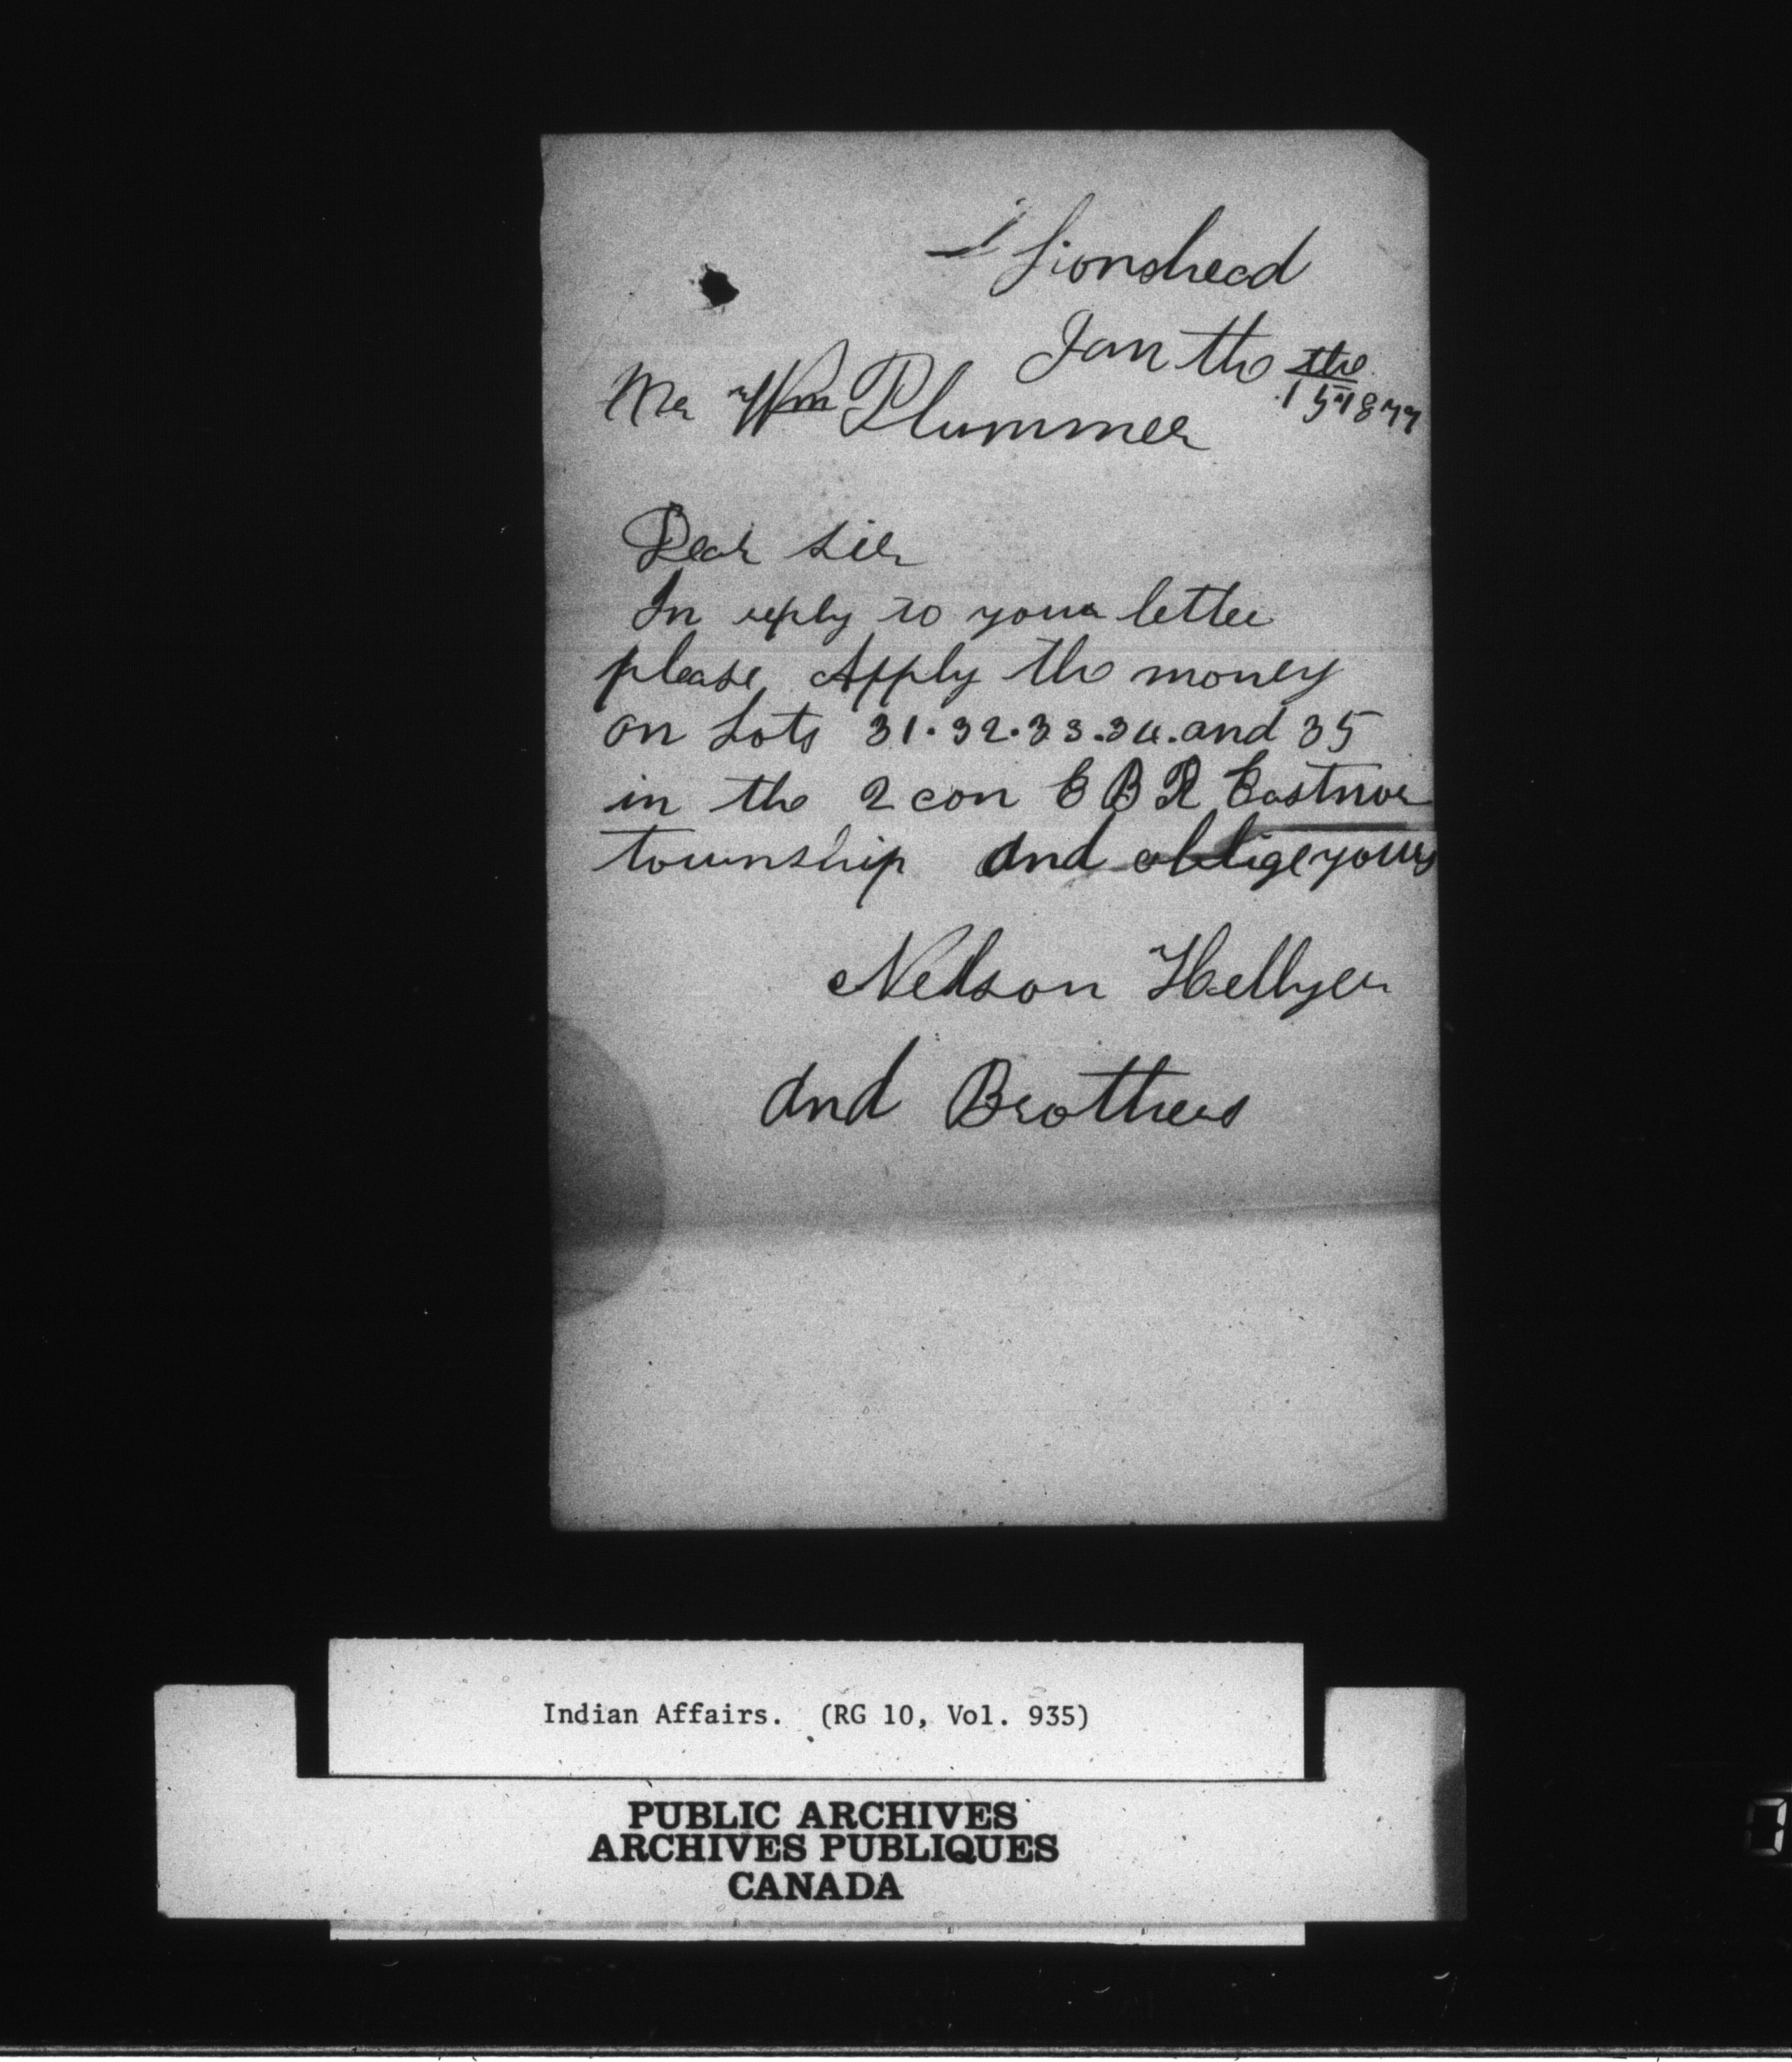 Lionshead
Jan the the
15 1877
Mr Wm Plummer
Dear Sir
In reply to your letter
please Apply the money
on Lots 31.32.33.34.and 35
in the 2 con E B R Eastnor
township and oblige yours
Nelson Hellyer
and Brothers
Indian Affairs. (RG 10, Vol. 935)
PUBLIC ARCHIVES
ARCHIVES PUBLIQUES
CANADA